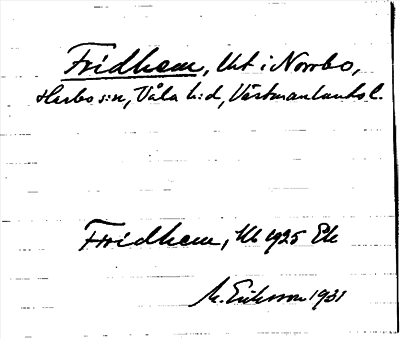 Fridhem, lht i Norrbo,
Harbo s:n, Våla h:d, Västmanlands l.
Fridhem, Ub 1925 Ek
M. Eriksson 1931